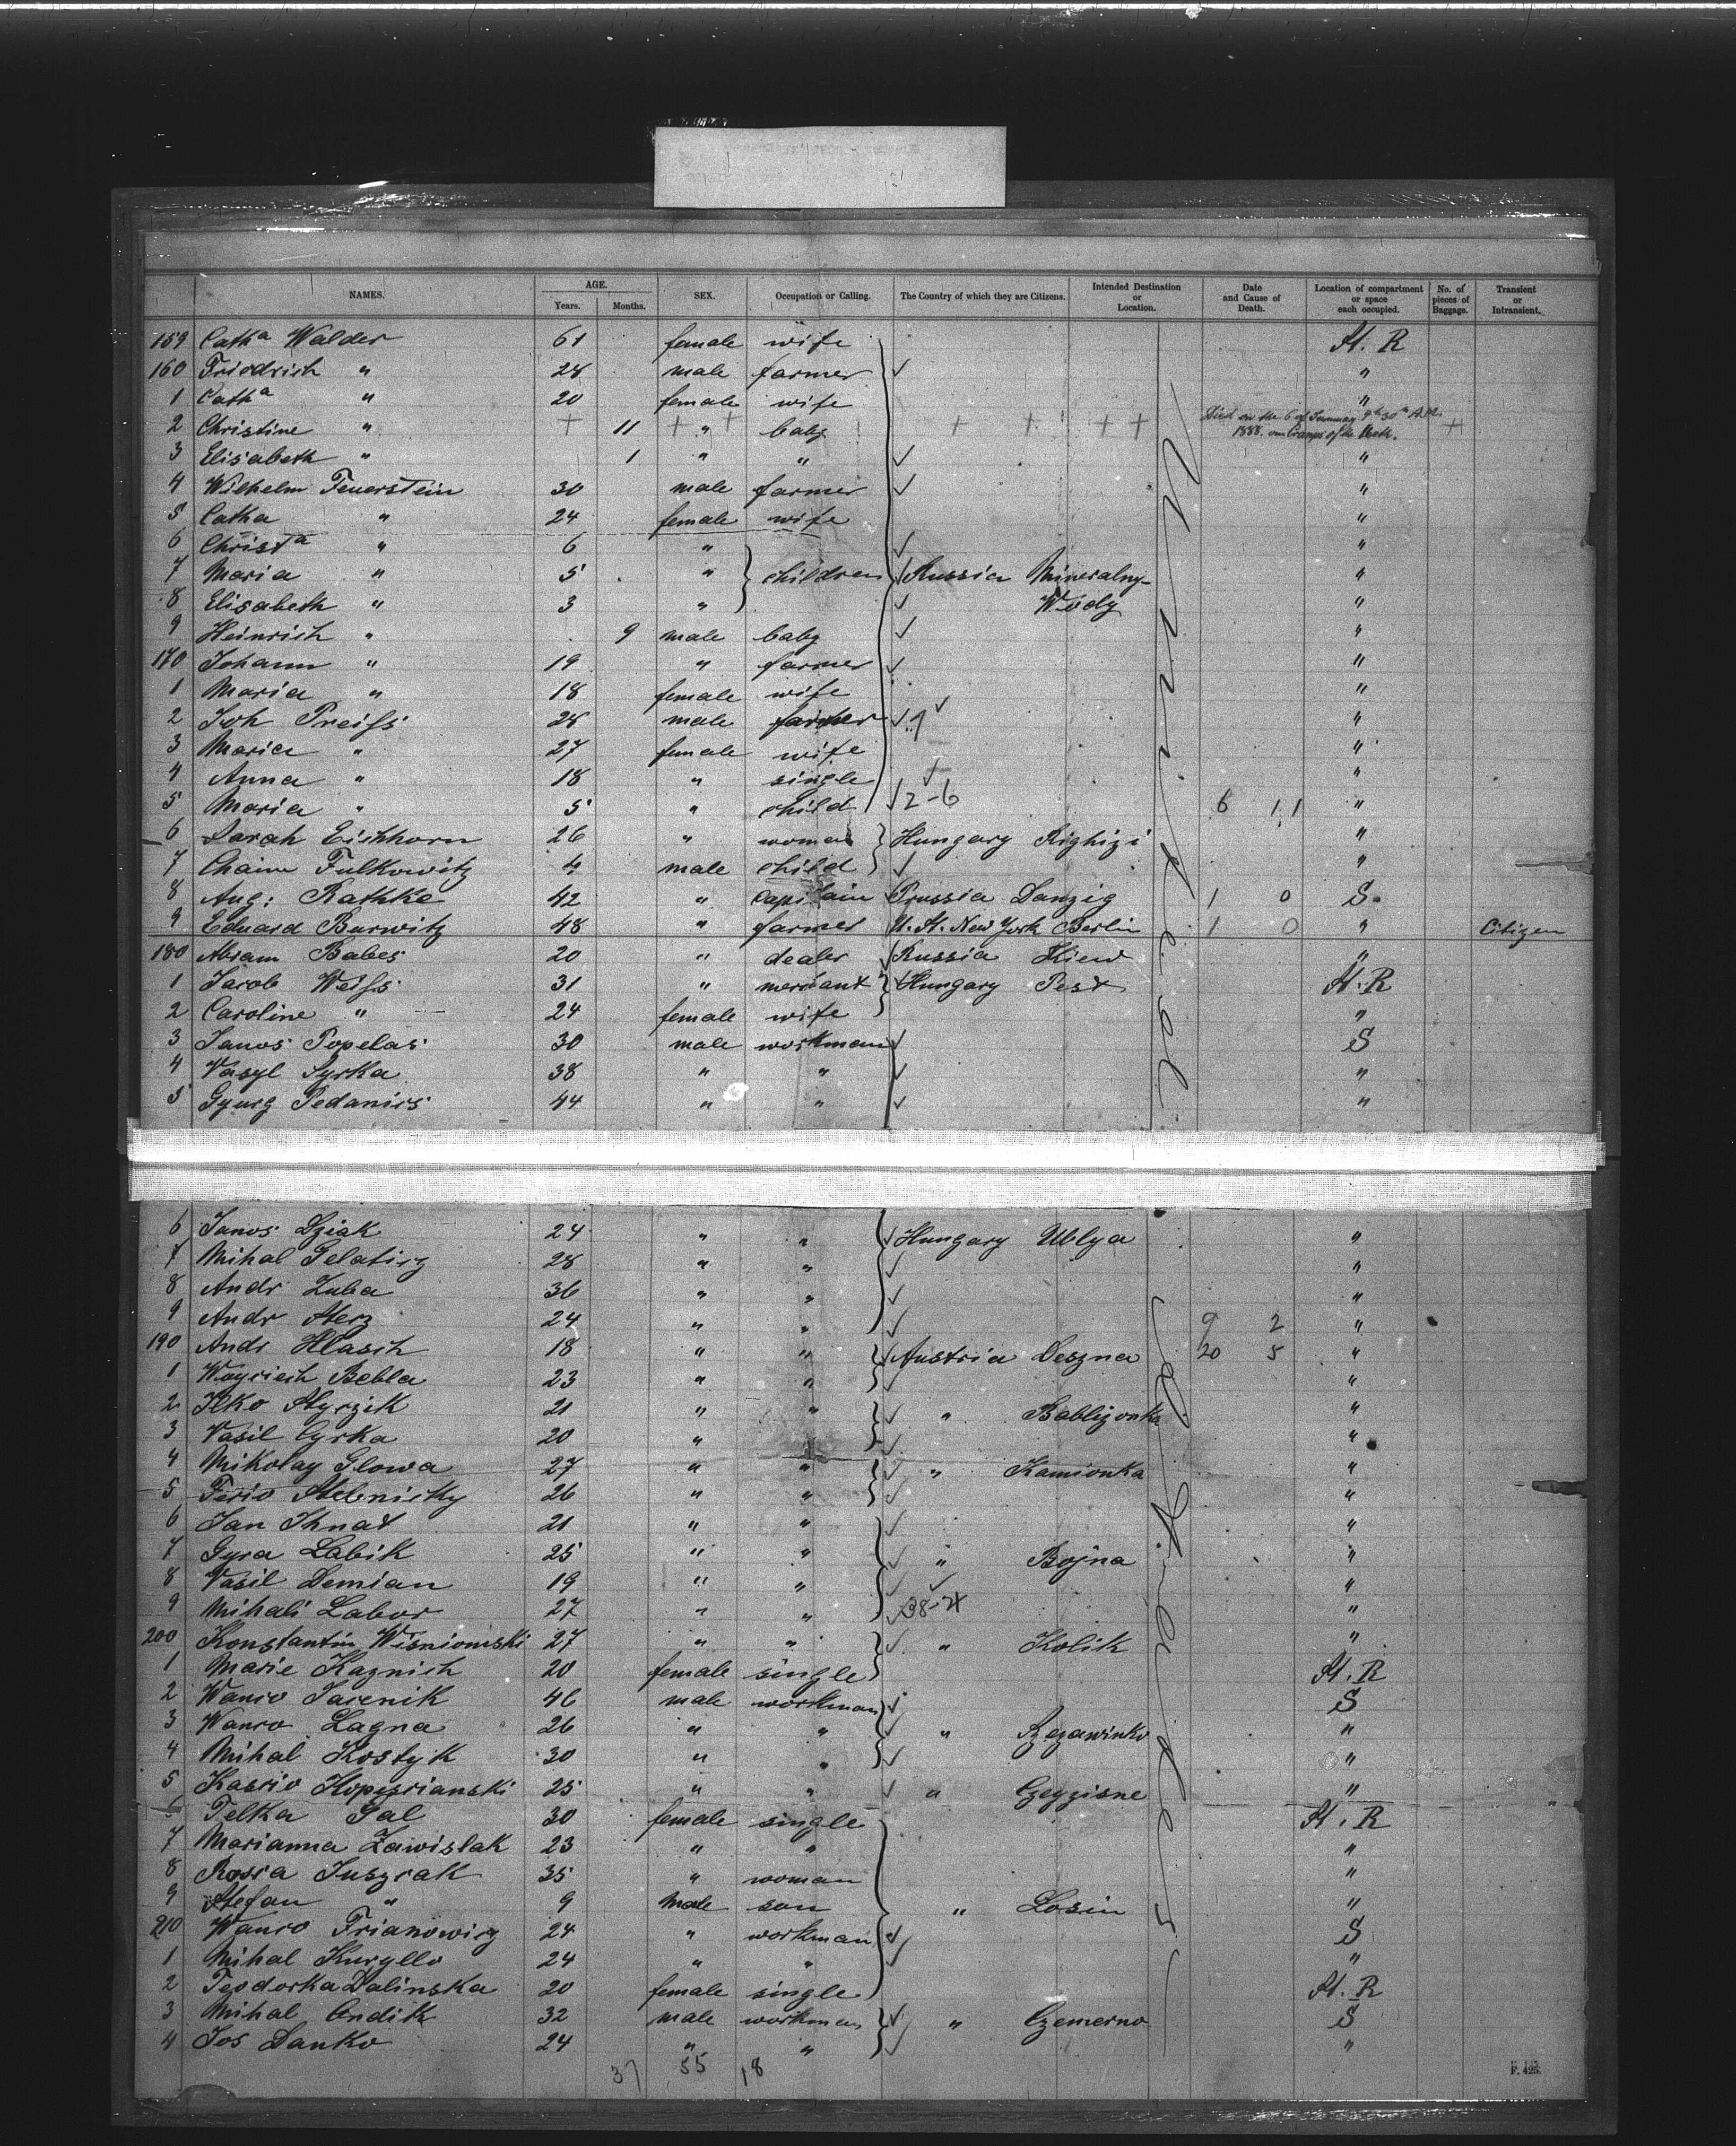 NAMES. AGE. Years. Months. SEX. Occupation or Calling. The Country of which they are Citizens. Intended Destination or Location. Date and Cause of Death. Location of compartment or space each occupied. No. of pieces of Baggage. Transient or Intransient.
159 Catha Walder 61 female wife St. R
160 Friedrich " 28 male farmer "
1 Catha " 20 female wife "
2 Christine " 11 " baby Died on the 6 of January 9h 30m A.M. 1888. Cramps of the
3 Elisabeth " 1 " " "
4 Wilhelm Feuerstein 30 male farmer "
5 Catha " 24 female wife "
6 Christa " 6 " "
7 Maria " 5 " children Russia Mineralny- "
8 Elisabeth " 3 " Wody "
9 Heinrich " 9 male baby "
170 Johann " 19 " farmer "
1 Maria " 18 female wife "
2 Joh Preiss 28 male farmer "
3 Maria " 27 female wife "
4 Anna " 18 " single "
5 Maria " 5 " child 2-6 6 11 "
6 Sarah Eichhorn 26 " woman Hungary Righizi "
7 Chaim Fulkowitz 4 male child "
8 Aug: Rathke 42 " capitain Prussia Danzig 1 0 S.
9 Eduard Burwitz 48 " farmer U. St. New York Berlin 1 0 " Citizen
180 Abram Babes 20 " dealer Russia Kiew "
1 Jacob Weiss 31 " merchant Hungary Pest St. R
2 Caroline " 24 female wife "
3 Janos Popelas 30 male workman S
4 Vasyl Syrka 38 " " "
5 Gyurg Pedanics 44 " " "
6 Janos Dziak 24 " " Hungary Ublya "
7 Mihal Gelaticz 28 " " "
8 Andr Zuba 36 " " "
9 Andr Sterz 24 " " 9 2 "
190 Andr Hlasch 18 " " Austria Deszna 20 5 "
1 Woyciech Bebla 23 " " "
2 Ilko Styrzik 21 " " " Bablizonka "
3 Vasil Cyrka 20 " "
4 Mikolay Glowa 27 " " " Kamionka "
5 Ferio Stelnicky 26 " " "
6 Jan Ihnat 21 " " "
7 Gyra Labik 25 " " " Bojna "
8 Vasil Demian 19 " " "
9 Mihali Labor 27 " " 38-4 "
200 Konstantin Wisniowski 27 " " " Kolik "
1 Marie Kaznich 20 female single St. R
2 Wanco Jacenik 46 male workman S
3 Wanco Lagna 26 " " " Rzezawinko "
4 Mihal Kostyk 30 " " "
5 Kascio Kopiscianski 25 " " " Czeyzisne "
6 Telka Gal 30 female single St. R
7 Marianna Zawislak 23 " " "
8 Rosia Juszcak 35 " woman "
9 Stefan " 9 male son " Losin "
210 Wanco Frianowicz 24 " workman S
1 Mihal Kuryllo 24 " " "
2 Teodorka Dalinska 20 female single St. R
3 Mihal Condik 32 male workman " Czemerno S
4 Jos Danko 24 " " "
37 55 18
F. 425.